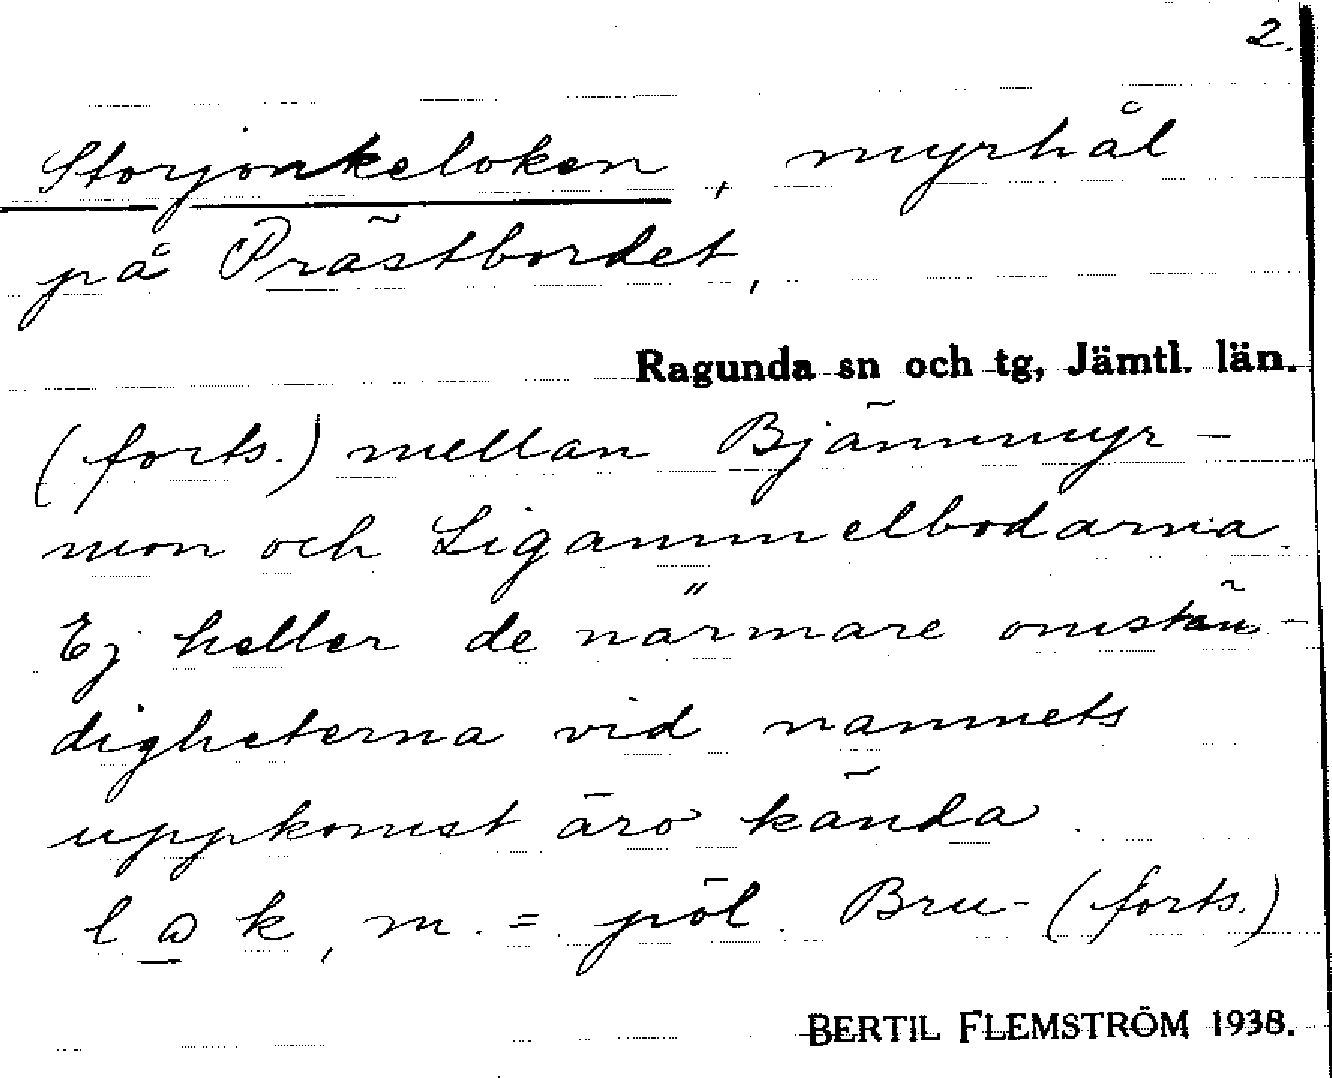 2.
Storjonkeloken, myrhål
på Prästbordet,
Ragunda sn och tg, Jämtl. län.
(forts.) mellan Bjännmyr-
mon och Ligammelbodarna.
Ej heller de närmare omstän-
digheterna vid namnets
uppkomst äro kända.
l o k, m. = pöl. Bru- (forts.)
BERTIL FLEMSTRÖM 1938.